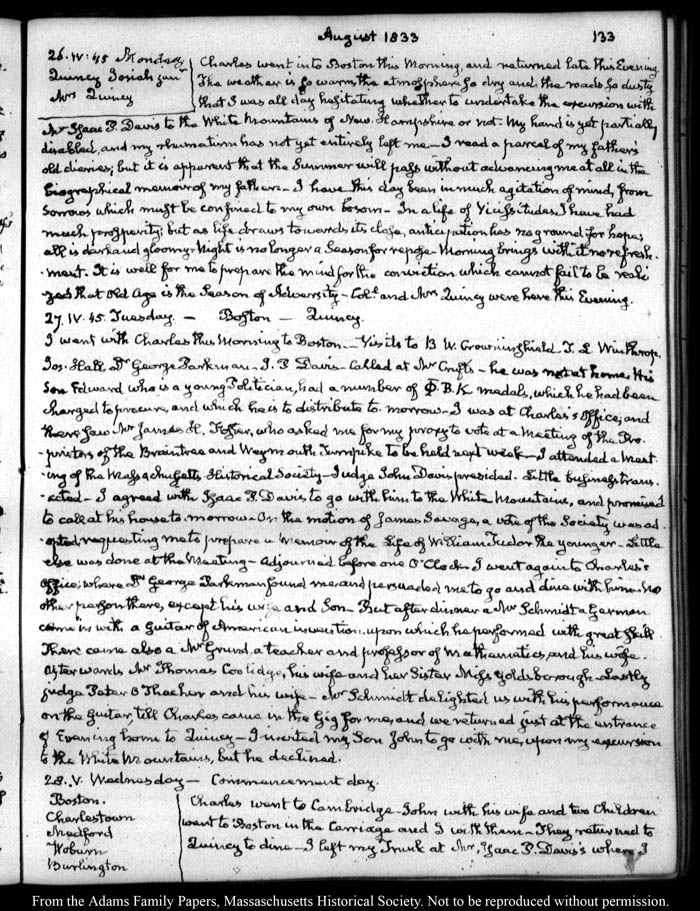 August 1833
133
26. IV:45 Monday
Quincy Josiah junr
Mrs Quincy
Charles went into Boston this Morning, and returned late this Evening.
The weather is so warm, the atmosphere so dry and the roads so dusty
that I was all day hesitating whether to undertake the excursion with
Mr Isaac P. Davis to the White Mountains of New-Hampshire or not. My hand is yet partially
disabled, and my rheumatism has not yet entirely left me— I read a parcel of my father's
old diaries; but it is apparent that the Summer will pass without advancing me at all in the
biographical memoir of my father— I have this day been in much agitation of mind, from
sorrows which must be confined to my own bosom— In a life of Vicissitudes I have had
much prosperity; but as life draws towards its close, anticipation has no ground for hope;
all is dark and gloomy— Night is no longer a Season for repose— Morning brings with it no refresh-
-ment. It is well for me to prepare the mind for the conviction which cannot fail to be reali-
zed that Old Age is the Season of Adversity— Col. and Mrs Quincy were here this Evening.
27. IV.45. Tuesday. — Boston — Quincy.
I went with Charles this Morning to Boston— Visits to B W. Crowninshield. T. L. Winthrop,
Jos. Hall, Dr George Parkman— I. P Davis— Called at Mr Crufts— he was not at home. His
Son Edward who is a young Politician, had a number of Φ.B.K medals, which he had been
charged to procure, and which he is to distribute to-morrow— I was at Charles's Office, and
there saw Mr James H. Foster, who asked me for my proxy to vote at a Meeting of the Pro-
-prietors of the Braintree and Weymouth Turnpike to be held next week— I attended a Meet-
-ing of the Massachusetts Historical Society— Judge John Davis presided. Little business trans-
-acted— I agreed with Isaac P. Davis, to go with him to the White Mountains, and promised
to call at his house to-morrow— On the motion of James Savage, a vote of the Society was ad-
-opted requesting me to prepare a Memoir of the Life of William Tudor the younger— Little
else was done at the Meeting— Adjourned before one O'Clock— I went again to Charles's
Office; where Dr George Parkman found me and persuaded me to go and dine with him. No
other person there, except his wife and Son— But after dinner a Mr Schmidt a German
came in with a Guitar of American invention, upon which he performed with great skill
There came also a Mr Grund, a teacher and professor of Mathematics, and his wife.
Afterwards Mr Thomas Coolidge, his wife and her Sister Miss Goldsborough— Lastly
Judge Peter O Thacher and his wife— Mr Schmidt delighted us with his performance
on the Guitar, till Charles came in the Gig for me, and we returned just at the entrance
of Evening home to Quincy— I invited my Son John to go with me, upon my excursion
to the White Mountains, but he declined.
28. V. Wednesday— Commencement day.
Boston.
Charlestown
Medford
Woburn
Burlington
Charles went to Cambridge— John with his wife and two Children
went to Boston in the Carriage and I with them— They returned to
Quincy to dine— I left my Trunk at Mr. Isaac P. Davis's where I
From the Adams Family Papers, Massachusetts Historical Society. Not to be reproduced without permission.